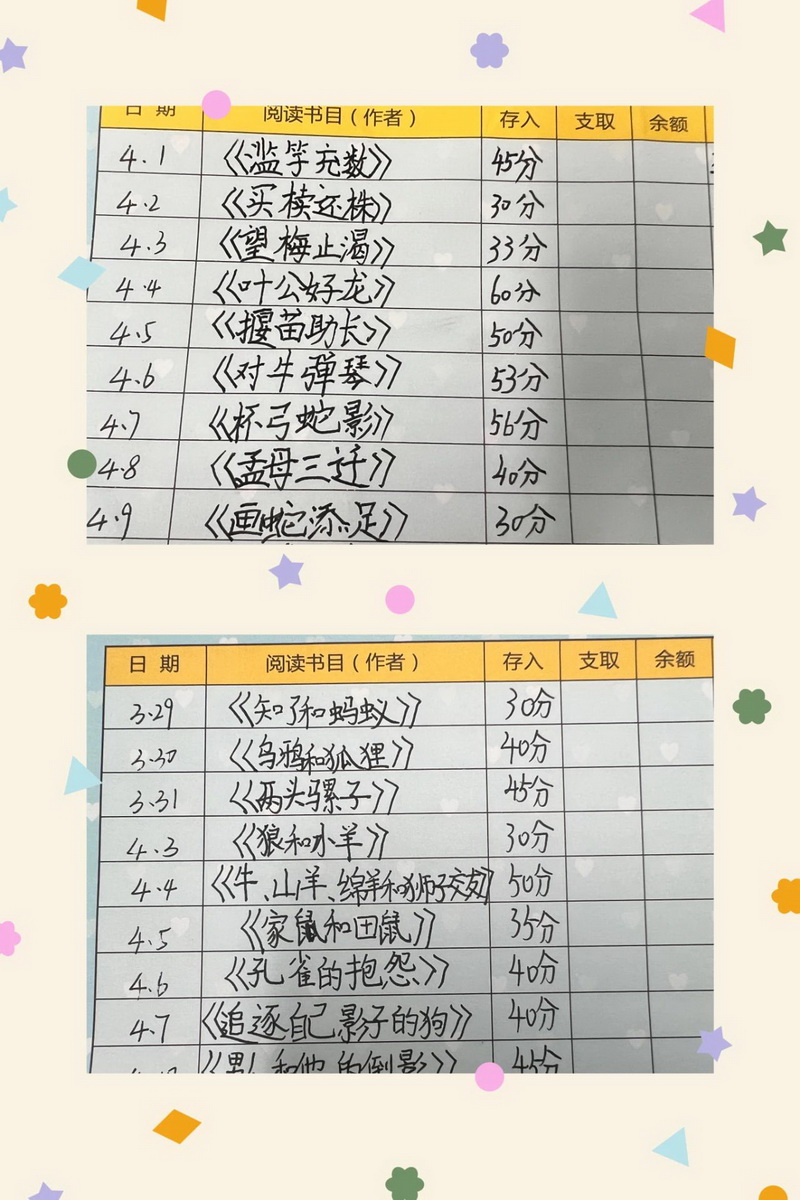 日 期 阅读书目（作者） 存入 支取 余额
4.1 《滥竽充数》 45分
4.2 《买椟还株》 30分
4.3 《望梅止渴》 33分
4.4 《叶公好龙》 60分
4.5 《揠苗助长》 50分
4.6 《对牛弹琴》 53分
4.7 《杯弓蛇影》 56分
4.8 《孟母三迁》 40分
4.9 《画蛇添足》 30分
日 期 阅读书目（作者） 存入 支取 余额
3.29 《知了和蚂蚁》 30分
3.30 《乌鸦和狐狸》 40分
3.31 《两头骡子》 45分
4.3 《狼和小羊》 30分
4.4 《牛、山羊、绵羊和狮子交友》 50分
4.5 《家鼠和田鼠》 35分
4.6 《孔雀的抱怨》 40分
4.7 《追逐自己影子的狗》 40分
《男人和他的倒影》 45分